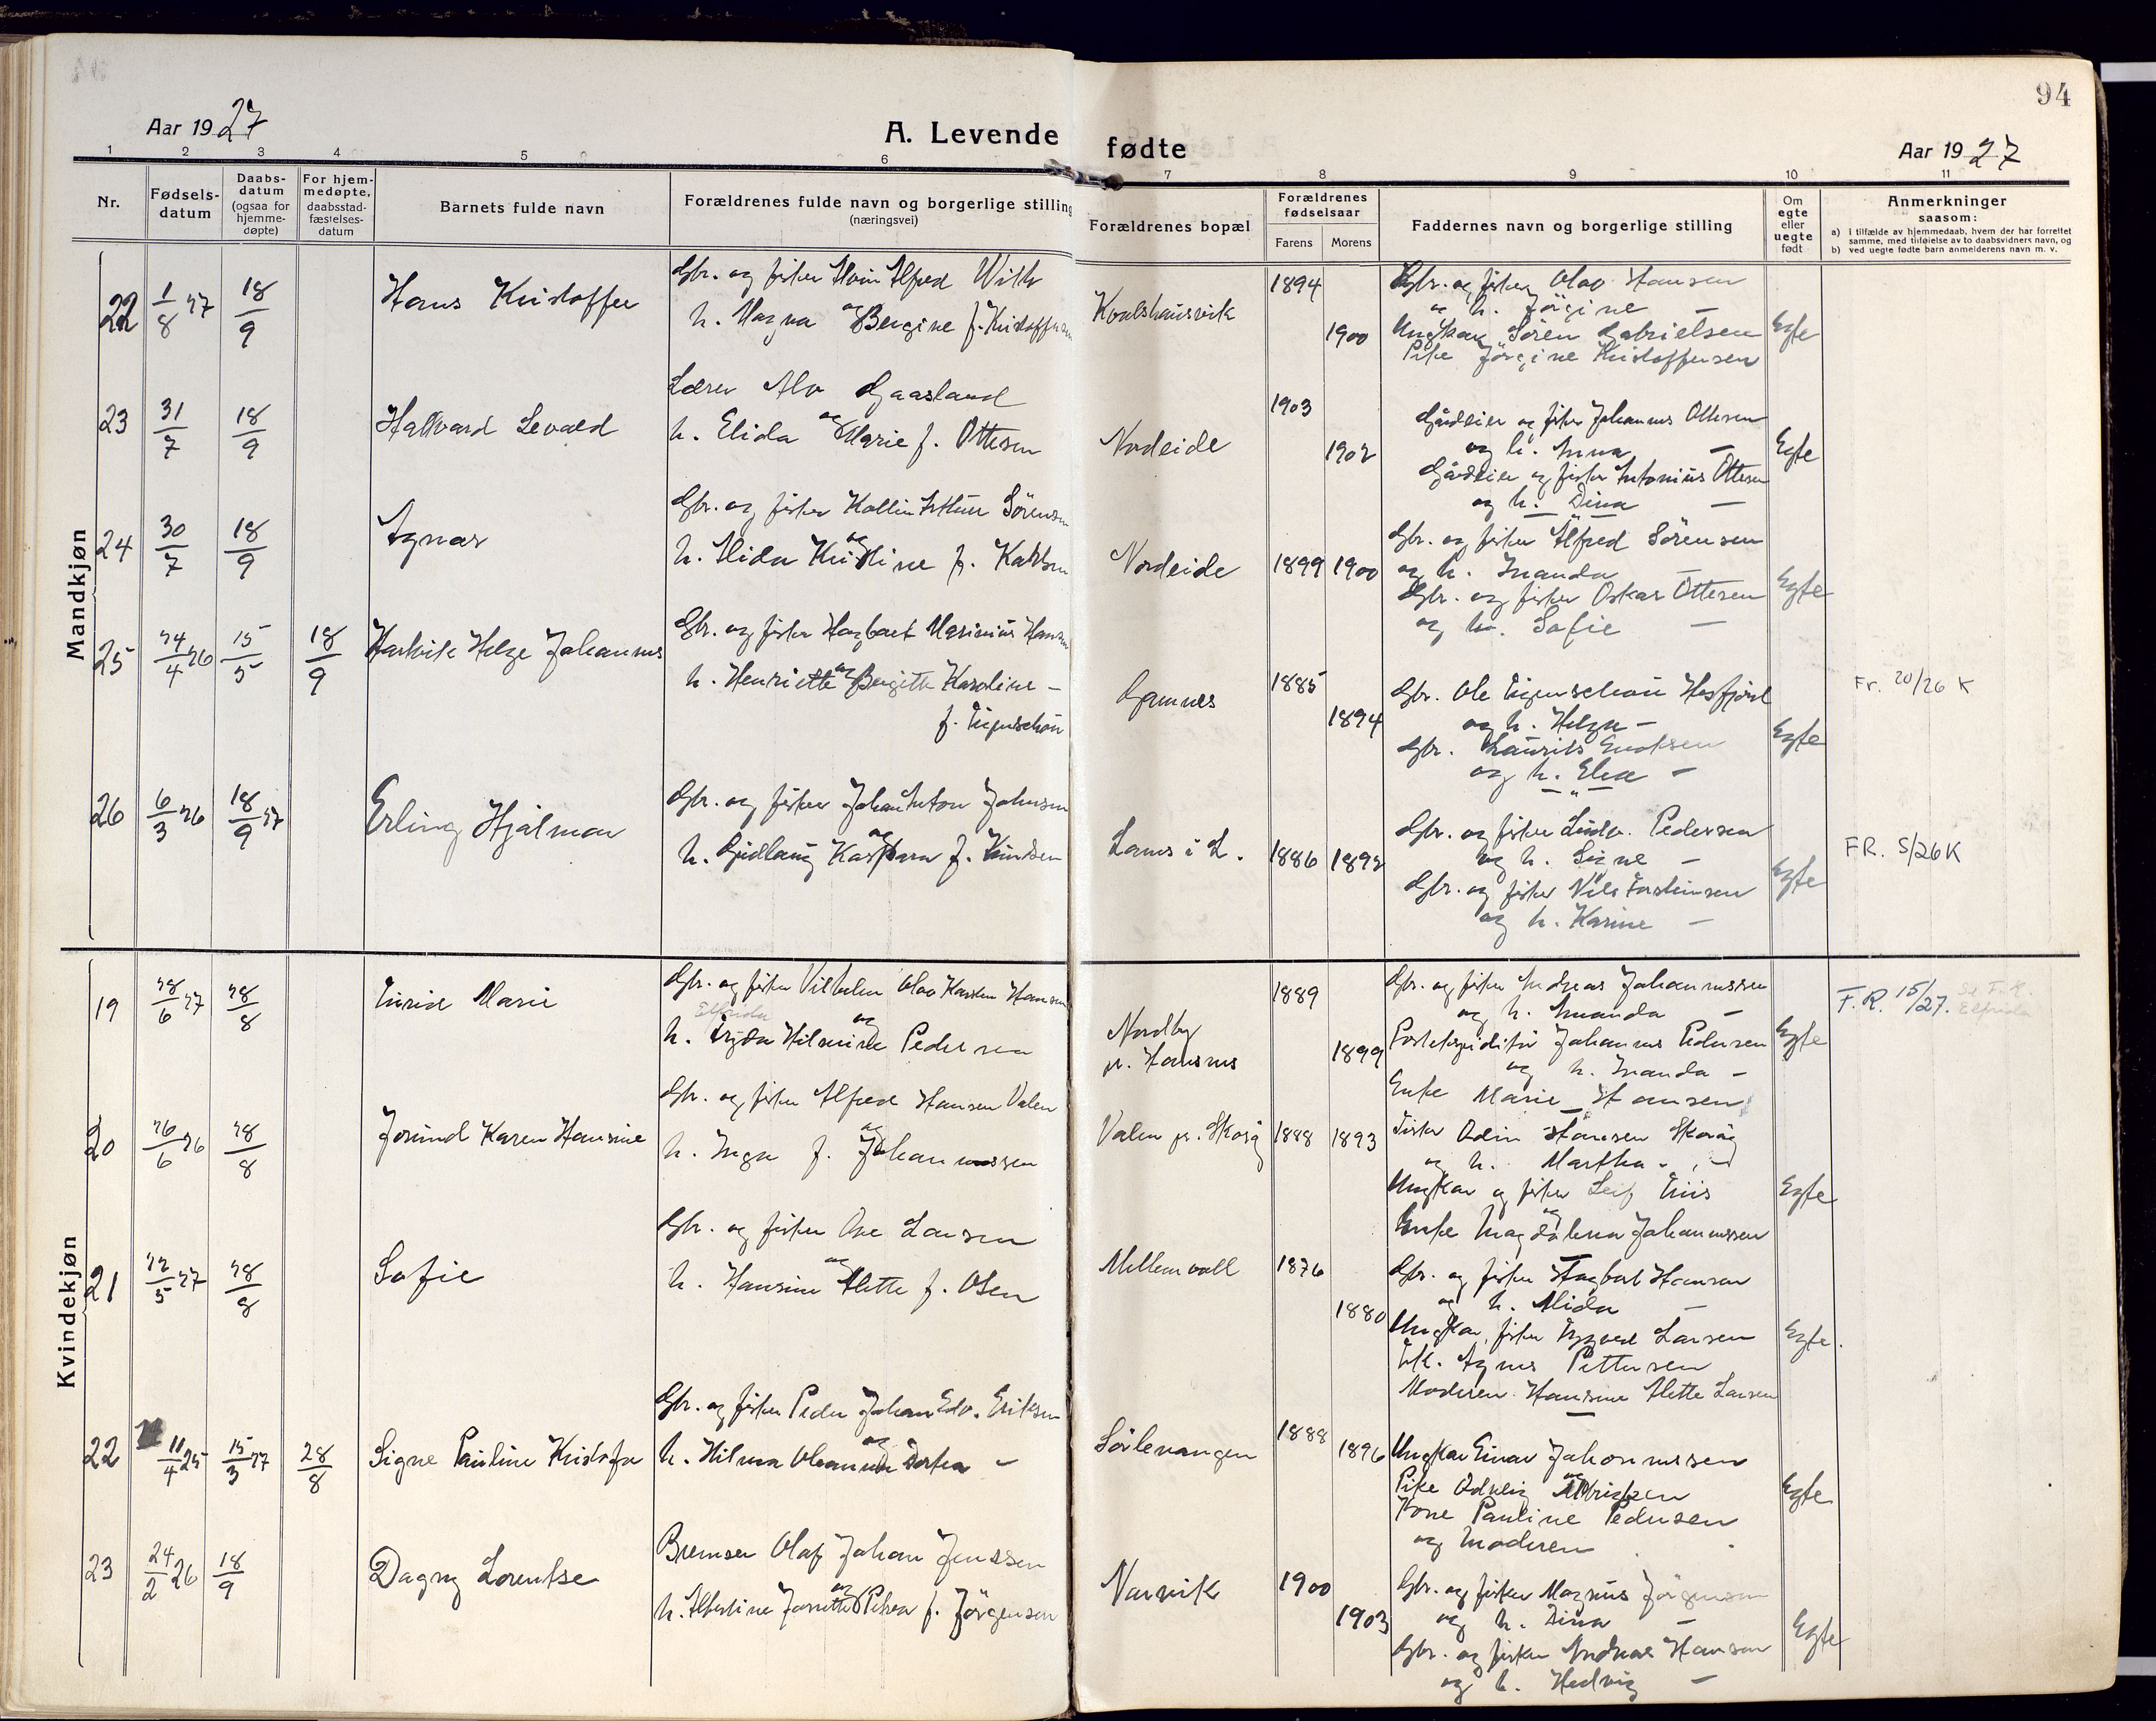 94
Aar 1927
A. Levende fødte
Aar 1927
1 2 3 4 5 6 7 8 9 10 11
Nr.
Fødsels-
datum
Daabs-
datum
(ogsaa for
hjemme-
døpte)
For hjem-
medøpte,
daabsstad-
fæstelses-
datum
Barnets fulde navn
Forældrenes fulde navn og borgerlige stilling
(næringsvei)
Forældrenes bopæl
Forældrenes
fødselsaar
Farens Morens
Faddernes navn og borgerlige stilling
Om
egte
eller
uegte
født
Anmerkninger
saasom:
a) i tilfælde av hjemmedaab, hvem der har forrettet
samme, med tilføielse av to daabsvidners navn, og
b) ved uegte fødte barn anmelderens navn m. v.
Mandkjøn
22 1/8 27 18/9 Hans Kristoffer
Gbr. og fisker Alfred With
og
h. Magna Bergine f. Kristoffersen
1894
1900
Gbr. og fisker Olav Hansen
og h. Jørgine —
Ungkar Søren Gabrielsen
Pike Jørgine Kristoffersen
Egte
23 31/7 18/9 Hallvard Sevald
Lærer Alv Gaasland
og
h. Elida Marie f. Ottesen
Nordeide
1903
1902
Gårdeier og fisker Johannes Ottesen
og h. Anna —
Gårdeier og fisker Antonius Ottesen
og h. Dina —
Egte
24 30/7 18/9 Agnar
Gbr. og fisker Kollin Arthur Sørensen
og
h. Alida Kristine f. Karlsen
Nordeide 1899 1900
Gbr. og fisker Alfred Sørensen
og h. Inanda —
Gbr. og fisker Oskar Ottesen
og h. Sofie —
Egte
25 24/4 26 15/5 18/9 Hartvik Helge Johannes
Gbr. og fisker Hagbart Marinius Hansen
og
h. Henriette Bergitte Karoline —
f.
Gamnes
1885
1894
Gbr. Ole Hesfjord
og h. Helga —
Gbr. Laurits Enoksen
og h. Elise —
Egte
Fr. 20/26 K
26 6/3 26 18/9 27 Erling Hjalmar
Gbr. og fisker Johan Anton Johnsen
og
h. Gudlaug Kaspara f. Knudsen
Lanes i L. 1886 1892
Gbr. og fisker Ludv. Pedersen
og h. Signe —
Gbr. og fisker Nils Torsteinsen
og h. Karine —
Egte
FR. 5/26 K
Kvindekjøn
19 28/6 27 28/8 Turid Marie
Gbr. og fisker Vilhelm Olav Karsten Hansen
Elfrida og
h. Fryda Hilmine Pedersen
Nordby
pr. Hansnes
1889
1899
Gbr. og fisker Andreas Johannessen
og h. Amanda —
Postekspeditør Johannes Pedersen
og h. Inanda —
Enke Marie Hansen
Egte
F.R. 15/27. Se F.R.
Elfrida
20 26/6 26 28/8 Jorund Karen Hansine
Gbr. og fisker Alfred Hansen Valen
og
h. Inga f. Johannessen
Valen pr. Skorøy 1888 1893
Fisker Odin Hansen Skorøy
og h. Martha —
Ungkar og fisker Leif Friis
og
Enke Magdalena Johannessen
Egte
21 22/5 27 28/8 Sofie
Gbr. og fisker Ove Larsen
og
h. Hansine Alette f. Olsen
Mellemvoll 1876
1880
Gbr. og fisker Hagbart Hansen
og h. Alida —
Ungkar, fisker Trygved Larsen
Frk. Agnes Pettersen
Moderen Hansine Alette Larsen
Egte.
22 11/4 25 15/3 27 28/8 Signe Pauline Kristofa
Gbr. og fisker Peder Johan Edv. Eriksen
og
h. Hilma Oleanna Dorthea —
Sørlevangen 1888
1896
Ungkar Einar Johannessen
Pike Odveig
Kone Pauline Pedersen
og moderen
Egte
23 24/2 26 18/9 Dagny Lorentse
Bremser Olaf Johan Jenssen
og
h. Albertine Jonette Petrea f. Jørgensen
Narvik 1900
1903
Gbr. og fisker Magnus Jørgensen
og h. Dina —
Gbr. og fisker Andreas Hansen
og h. Hedvig —
Egte